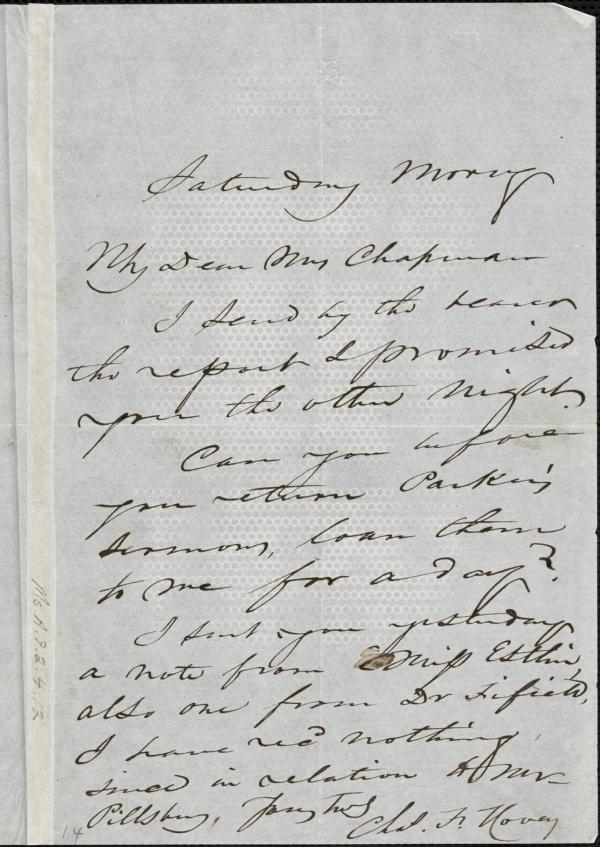 Saturday Morng
My Dear Mrs Chapman
I send by the bearer
the report I promised
you the other night.
Can you before
you return Parker's
sermons, loan them
to me for a day?
I sent you yesterday
a note from Miss Estlin,
also one from Dr Fifield,
I have recd nothing
since in relation to Mr
Pillsbury, truly
Chas. F. Hovey
Ms.A.9.2.4.
14